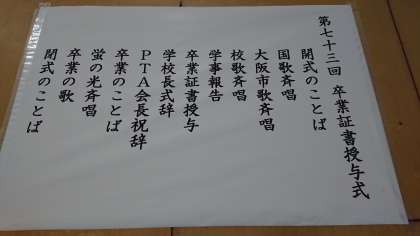 第七十三回 卒業証書授与式
開式のことば
国歌斉唱
大阪市歌斉唱
校歌斉唱
学事報告
卒業証書授与
学校長式辞
PTA会長祝辞
卒業のことば
蛍の光斉唱
卒業の歌
閉式のことば